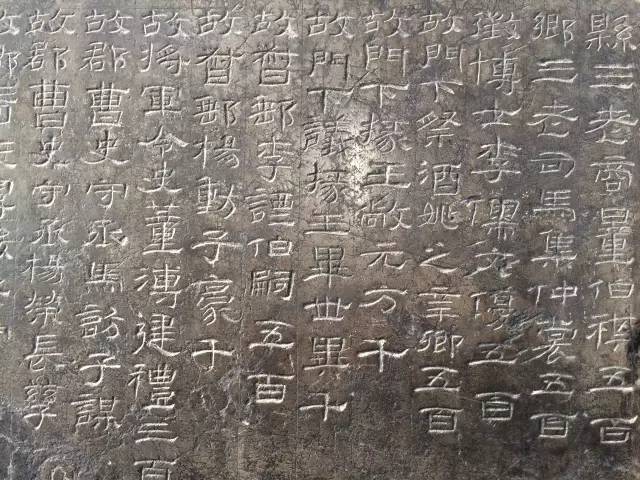 縣三老商量伯祺五百
鄉三老司馬集仲裳五百
徵博士李儒文優五百
故門下祭酒姚之辛卿五百
故門下掾王敞元方千
故門下議掾王畢世異千
故督郵李諲伯嗣五百
故督郵楊動子豪千
故將軍令史董溥建禮三百
故郡曹史守丞馬訪子謀
故郡曹史守丞楊榮長孳